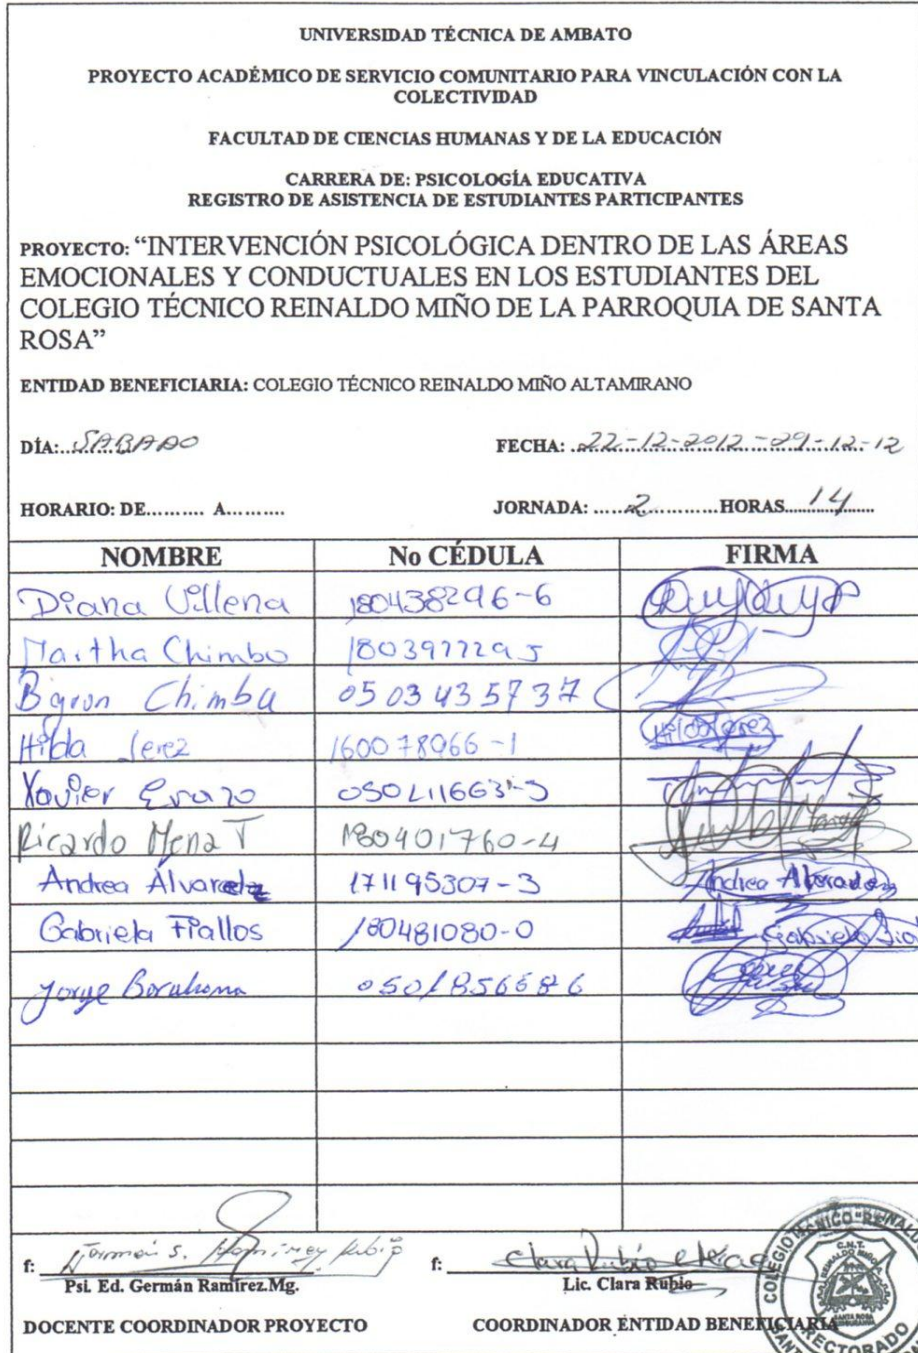 UNIVERSIDAD TÉCNICA DE AMBATO
PROYECTO ACADÉMICO DE SERVICIO COMUNITARIO PARA VINCULACIÓN CON LA
COLECTIVIDAD
FACULTAD DE CIENCIAS HUMANAS Y DE LA EDUCACIÓN
CARRERA DE: PSICOLOGÍA EDUCATIVA
REGISTRO DE ASISTENCIA DE ESTUDIANTES PARTICIPANTES
PROYECTO: “INTERVENCIÓN PSICOLÓGICA DENTRO DE LAS ÁREAS
EMOCIONALES Y CONDUCTUALES EN LOS ESTUDIANTES DEL
COLEGIO TÉCNICO REINALDO MIÑO DE LA PARROQUIA DE SANTA
ROSA”
ENTIDAD BENEFICIARIA: COLEGIO TÉCNICO REINALDO MIÑO ALTAMIRANO
DÍA: SABADO FECHA: 22-12-2012-29-12-12
HORARIO: DE.......... A.......... JORNADA: 2 HORAS 14
NOMBRE No CÉDULA FIRMA
Diana Villena 180438296-6
Martha Chimbo
Byron Chimbo 0503435737
Hilda Jerez 160078966-1 Hilda Jerez
Xavier Erazo
Ricardo Mena T 180401760-4
Andrea 171195307-3 Andrea
Gabriela Fiallos 180481080-0 Gabriela
Jorge
f: f: Clara Rubio
Psi. Ed. Germán Ramírez.Mg. Lic. Clara Rubio
DOCENTE COORDINADOR PROYECTO COORDINADOR ENTIDAD BENEFICIARIA
COLEGIO TÉCNICO
SANTA ROSA
RECTORADO